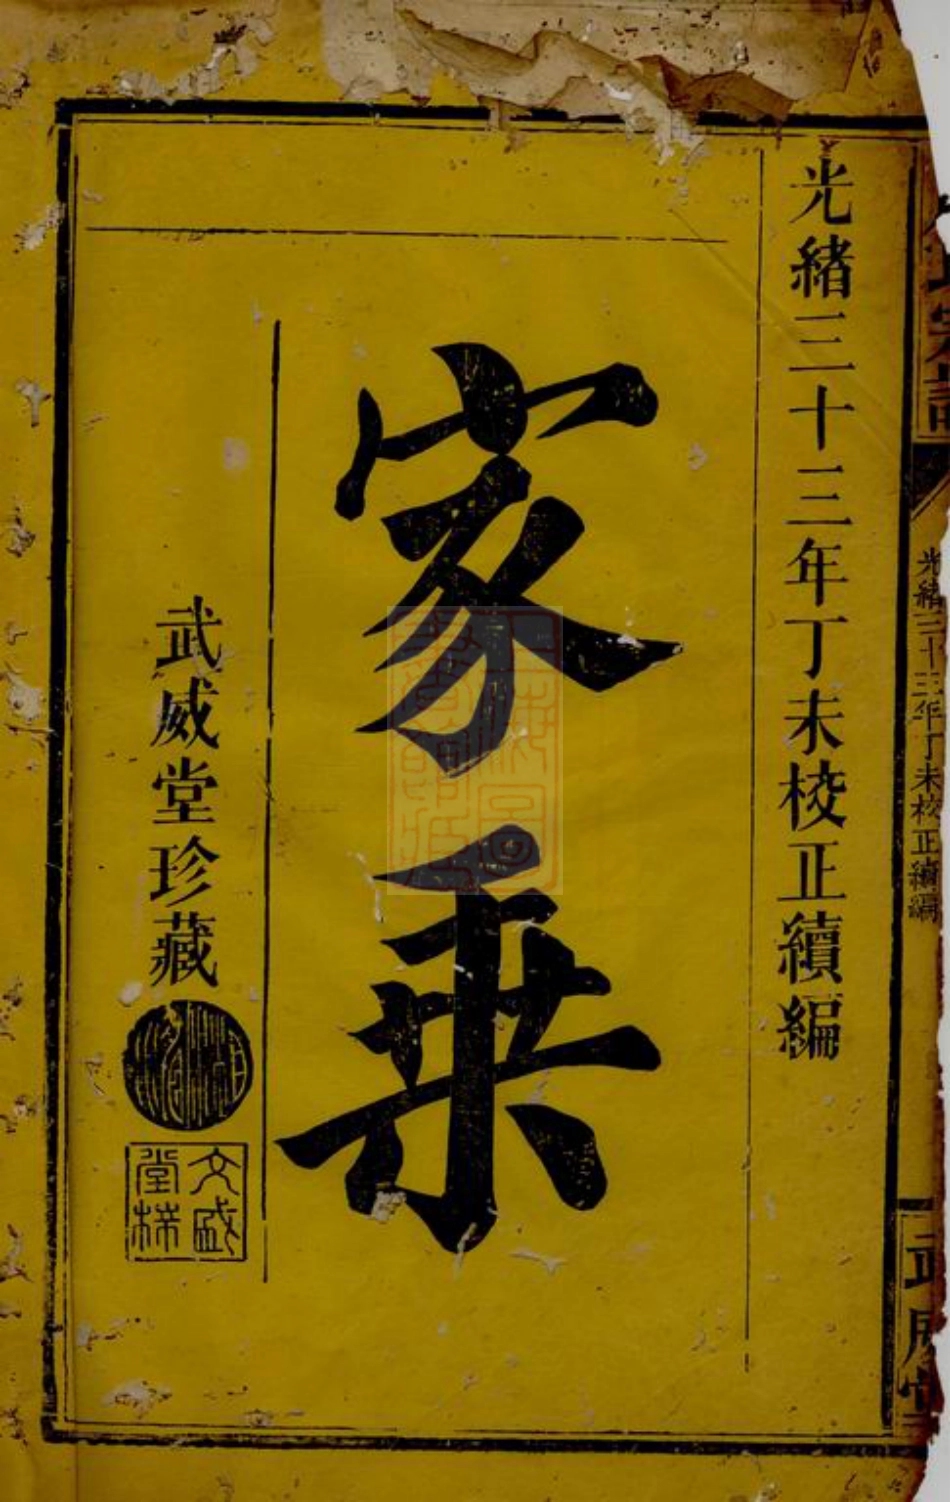 光緒三十三年丁未校正續編
家乘
武威堂珍藏
文盛堂梓
光緒三十三年丁未校正續編
武威堂